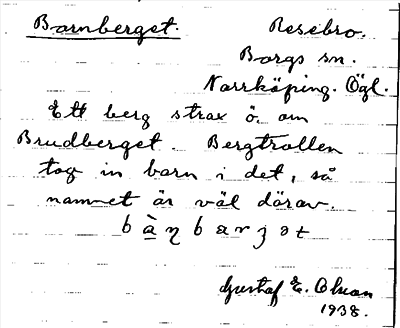 Barnberget. Resebro.
Borgs sn.
Norrköping. Ögl.
Ett berg strax ö. om
Brudberget. Bergtrollen
tog in barn i det, så
namnet är väl därav.
bàṇbærjət
Gustaf E. Olsson
1938.